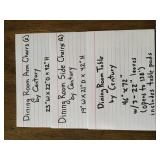 Dining Room Arm Chairs (2)
by Century
23"W x 22"D x 42"H
Dining Room Side Chairs (6)
by Century
19"W x 21"D x 42"H
Dining Room Table
by Century
46" x 72"
w/ 3 - 22" leaves
(opens to 138")
includes table pads